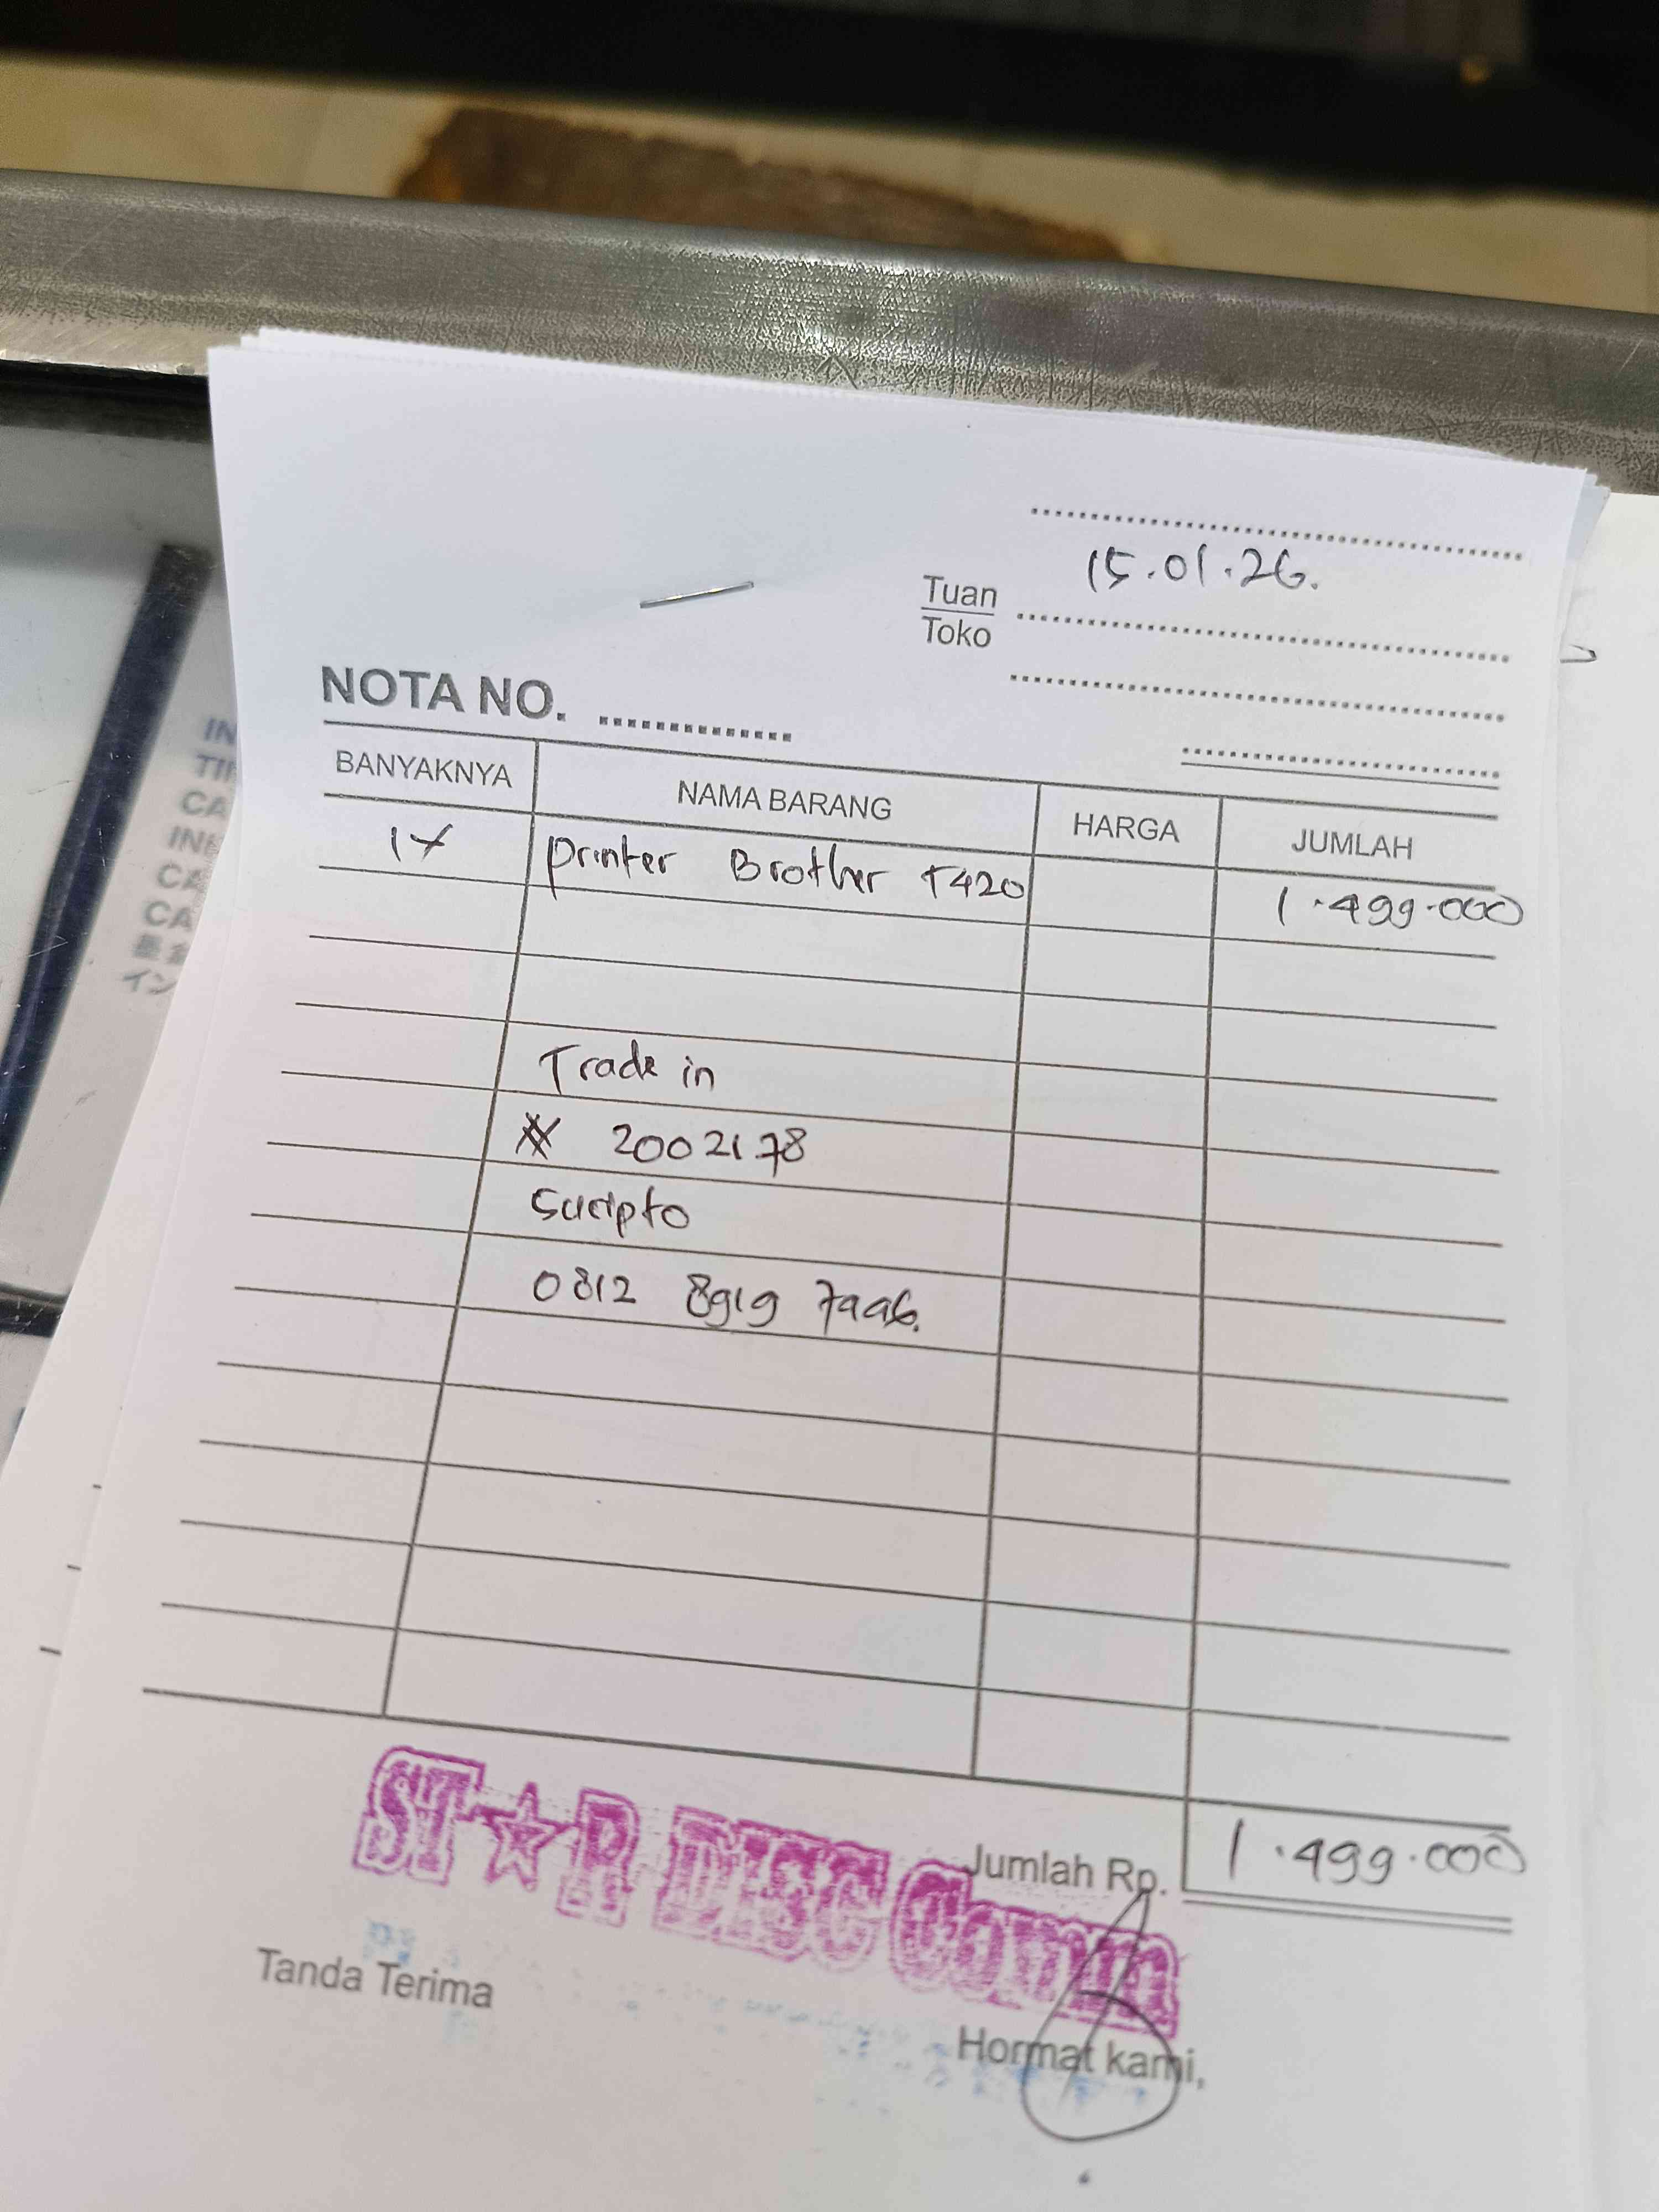 15.01.26.
Tuan
Toko
NOTA NO.
BANYAKNYA NAMA BARANG HARGA JUMLAH
1x printer Brother T420 1.499.000
Trade in
2002178
Sucipto
0812 8919 7996.
Jumlah Rp. 1.499.000
ST★R DISC Comm
Tanda Terima
Hormat kami,
IN
TIN
CA
INK
CA
CA
墨盒
イン